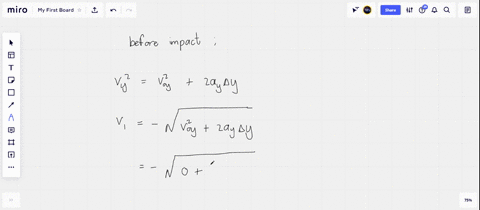 miro My First Board Share
before impact :
Vy² = Voy² + 2ayΔy
V₁ = -√(Voy² + 2ayΔy)
= -√(0 +
75%